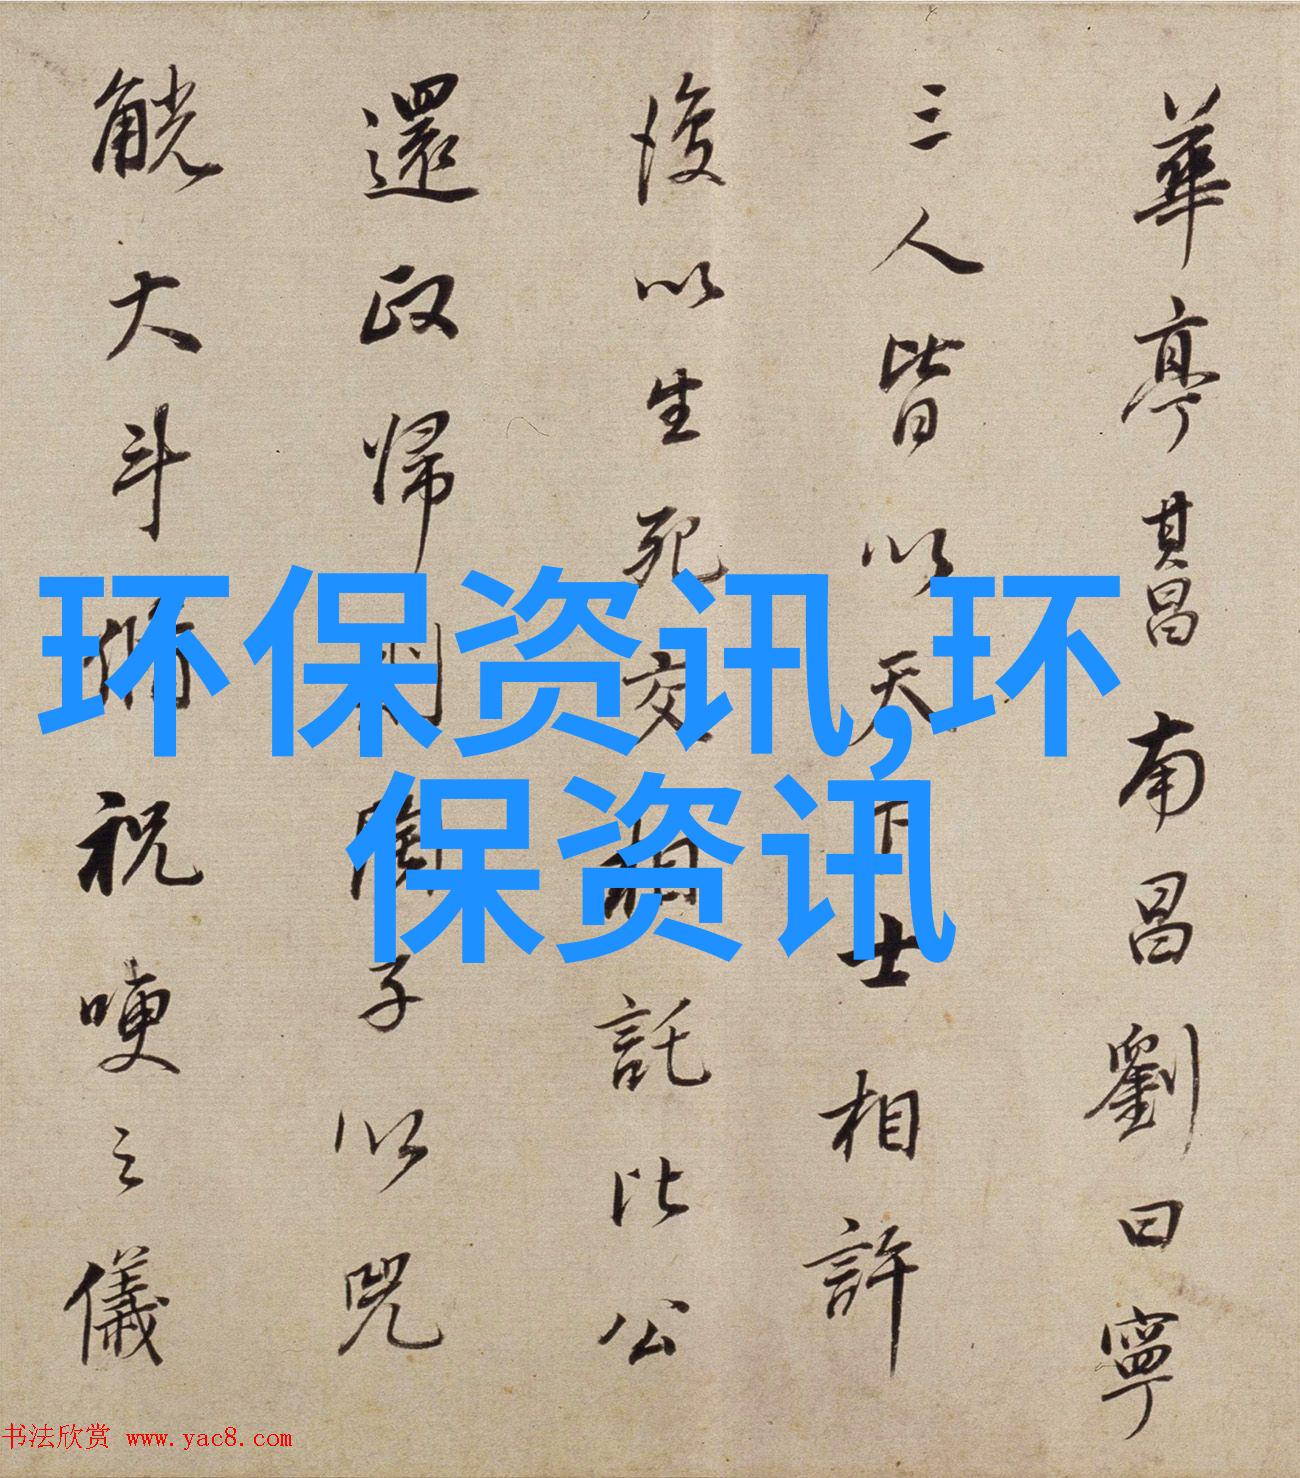 華亭其昌南昌劉曰寧
三人皆以天下士相許
後以生死交相託比公
還政歸 子以兕
觥大斗脩祝哽之儀
环保资讯,环
保资讯
书法欣赏 www.yac8.com